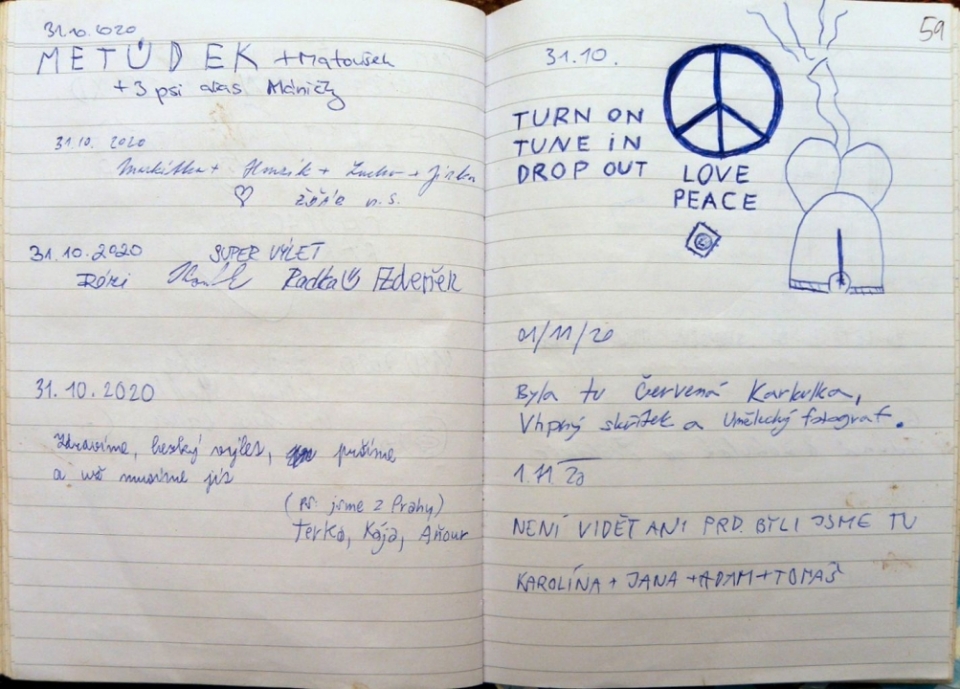 31.10.2020
METŮDEK + Matoušek
+ 3 psi alias Máničky
31.10. 2020
Markétka + Honzík + Lucka + Jirka
ŽĎÁR n.S.
31.10.2020 SUPER VÝLET
Radka Zdeněk
31.10.2020
Zdravíme, hezký výlet, pršíme
a už musíme jít
(PS: jsme z Prahy)
Terka, Kája, Aňour
59
31.10.
TURN ON
TUNE iN
DROP OUT
LOVE
PEACE
01/11/20
Byla tu Červená Karkulka,
Vtipný skřítek a Umělecký fotograf.
1.11.20
NENÍ VIDĚT ANI PRD. BYLI JSME TU
KAROLÍNA + JANA + ADAM + TOMAŠ